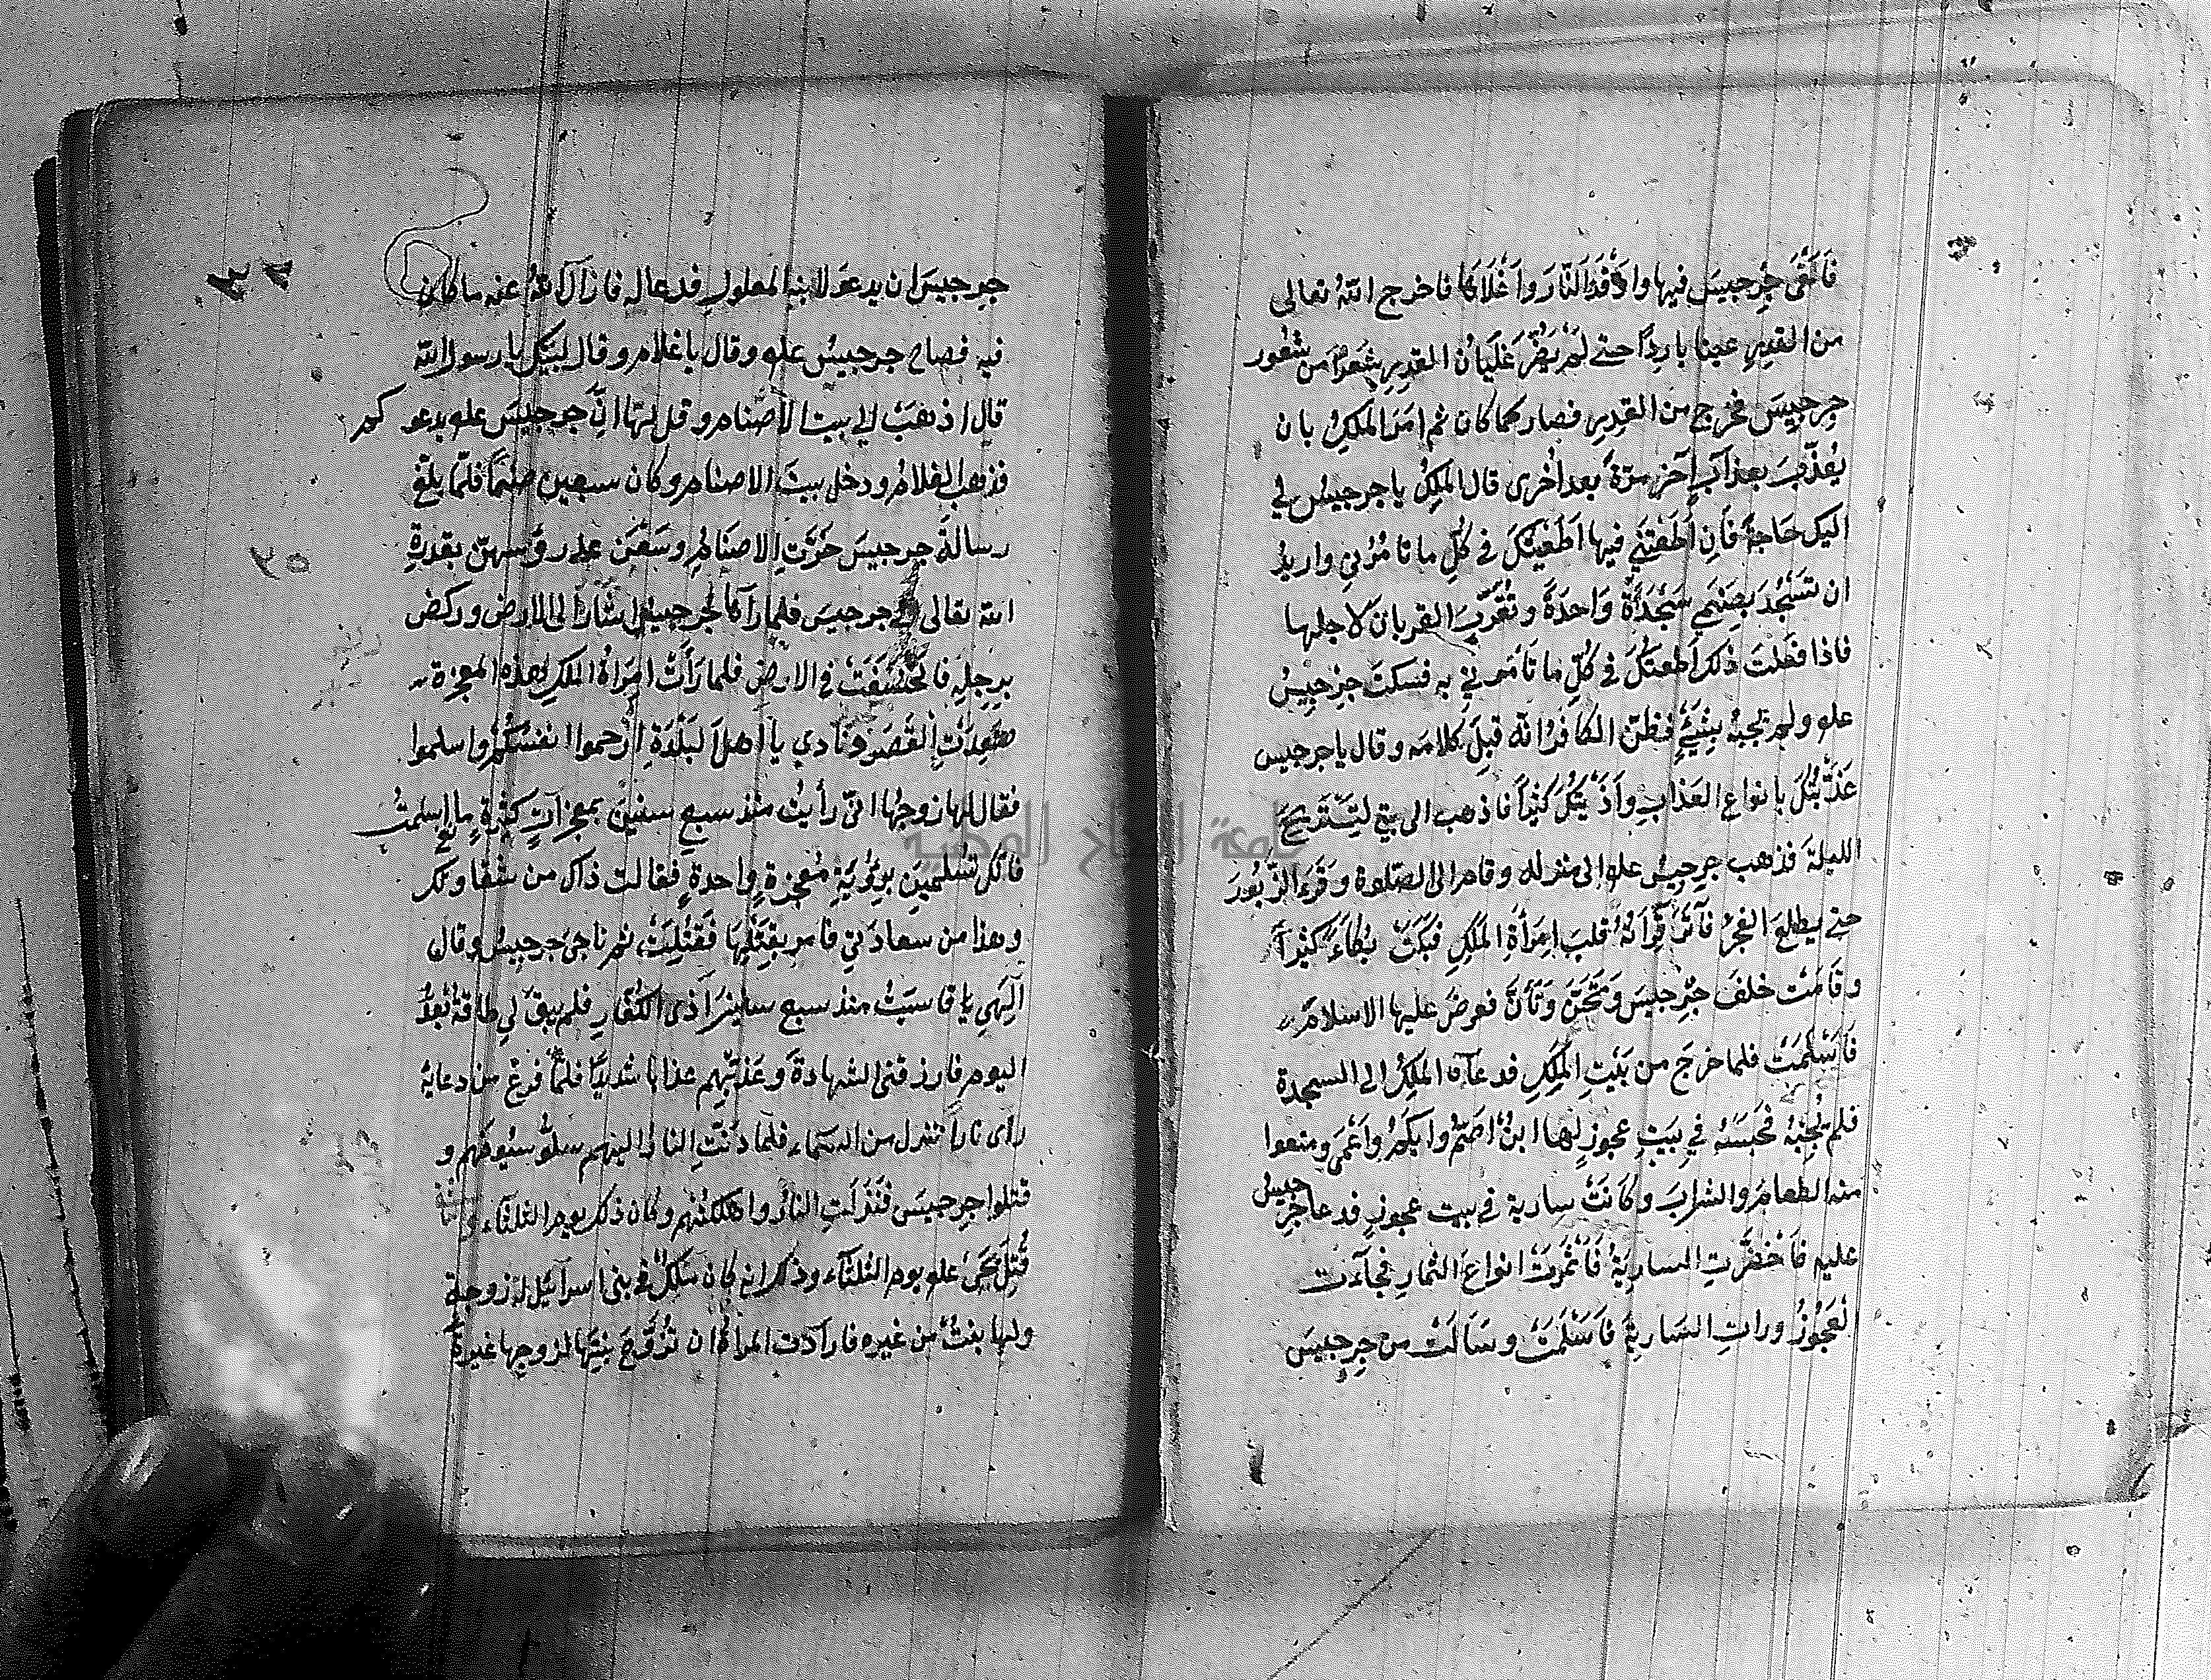 فَاَلْقَى جِرْجِيسَ فيها واَوْقَدَ النَّارَ وَاَغْلَاهَا فاخرج اللّٰه تعالى
من القدرِ عينا بارِداً حتى لم يَضُرَّ غَلَيَانُ القدرِ شَعْرًا من شعُور
جرجيسَ فخرج من القدرِ فصار كما كان ثم امَرَ الملكُ بان
يُعذّبَ بعذابٍ آخرَ مرّةً بعد اُخرى قال الملكُ يا جرجيسُ لي
اليك حَاجةٌ فَاِنْ اَطَعْتَنِي فيها اَطَعْتُكَ في كُلِّ ما تأمُرُني واريدُ
ان تَسْجُدَ بِصَنَمِي سَجْدَةً وَاحدةً وتُقَرِّبَ القربانَ لاجلها
فاذا فعلتَ ذلك اَطعتك في كلِّ ما تأمرني به فسكتَ جِرجيسُ
علم ولم يجبهُ بشيءٍ فظنّ الكافرُ انّه قبِلَ كلامَه وقال يا جرجيس
عَذَّبْتُكَ بانواع العَذابِ واَذَيْتُكَ كثيراً فاذهب الى بيتي لِتَسْتَرِيحَ
الليلةَ فذهب جرجيسُ علم الى منزله وقام الى الصّلوة وقرءَ الزّبُورَ
حتى يطلعَ الفجرُ فاَثّرَ قِرَاتُهُ قلبَ اِمرَأةِ المَلكِ فبَكَتْ بُكاءً كثيراً
وقامَتْ خلفَ جِرجيسَ وتَحَنَّ وتَأَنَّ فعرضَ عليها الاسلامَ
فَاَسْلَمَتْ فلما خرجَ من بَيْتِ المَلِكِ فدعَاه المَلِكُ الى السجدة
فلم يُجِبْهُ فحَبَسَهُ في بَيْتِ عجوزٍ لها ابنٌ اَصَمُّ وابكَمُ واَعْمَى ومنعوا
منه الطعامَ والشرابَ وكانَتْ سارية في بيت عجوزٍ فدعا جرجيسُ
عليه فَاخْضَرَّتِ الساريةُ فَاَثْمَرَتْ انواعَ الثمارِ فجآءت
العَجُوزُ وراتِ السَّاريةَ فَاَسْلَمَتْ وسَألَتْ من جرجيسَ
جرجيسَ ان يدعوَ لابنه المعلولِ فدعا له فازالَ اللّٰهُ عنه ما كان
فيه فصاح جرجيسُ علم وقال يا غلام وقال لبّيك يا رسول اللّٰه
قال اذهَبْ الى بيت الاصنام وقل لها انَّ جرجيسَ علم يدعوكم
فذهب الغلامُ ودخل بيتَ الاصنام وكان سبعين صنماً فلمّا بلّغ
رسالةَ جرجيسَ خَرَّتِ الاصنامُ وسَعَيْنَ على رؤسهنّ بقدرةِ
اللّٰه تعالى الى جرجيسَ فلما راَها جرجيسُ اشَارَ الى الارض وركض
برجلِه فانخسَفَتْ في الارضِ فلما رَأَتْ امرَاَةُ الملكِ هذه المعجزة
صَعِدَتِ القَصْرَ وتنادي يا اهلَ البَلْدَةِ ارْحموا انفسَكُمْ واسلموا
فقال لها زوجُها انّي رأيتُ منذ سبع سنينَ بمعجزاتٍ كثيرةٍ ما اسلمتُ
فانّكِ تسلمين برُؤيةِ معجزةٍ واحدةٍ فقالت ذاك من شقاوتك
وهذا من سعادَتي فامر بقتلِها فَقُتِلَتْ ثم ناجى جرجيسُ وقال
اِلٰهي يا قاسَيْتُ منذ سبع سنينَ اَذَى الكفّارِ فلم يبقَ لي طاقةٌ بَعْدُ
اليوم فارزقني الشهادةَ وعَذّبْهم عذابا شديدًا فلمّا فرغ من دعايهِ
رأى ناراً تنزل من السماء فلما دَنَتِ النارُ اليهم سلّوْ سُيُوفَهم و
قتلوا جرجيسَ فنَزَلَتِ النارُ واهلكتْهم وكان ذلك يومَ الثلثَاء
قُتِلَ يَحْيَى علم يومَ الثلثَاء وذكر انه كان ملكٌ في بنى اسرآئيل له زوجة
ولها بنتٌ من غيره فارآدت المراةُ ان تُزَوِّجَ بنتَها لزوجها غيرةً